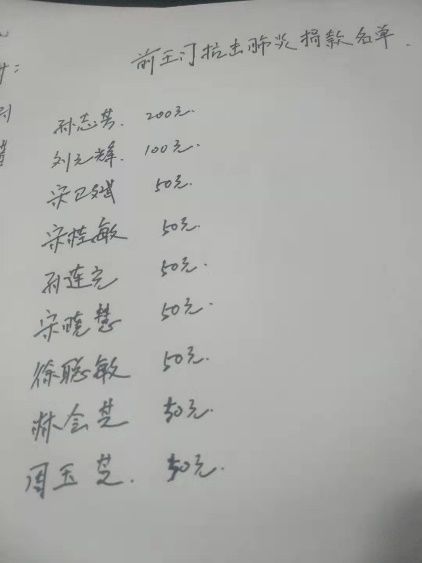 前王门抗击肺炎捐款名单.
孙志芳. 200元.
刘元辉. 100元.
宋卫斌 50元.
宋桂敏 50元.
孙莲元 50元.
宋晓慧 50元.
徐聪敏 50元.
林会芝 50元.
周玉芝. 50元.